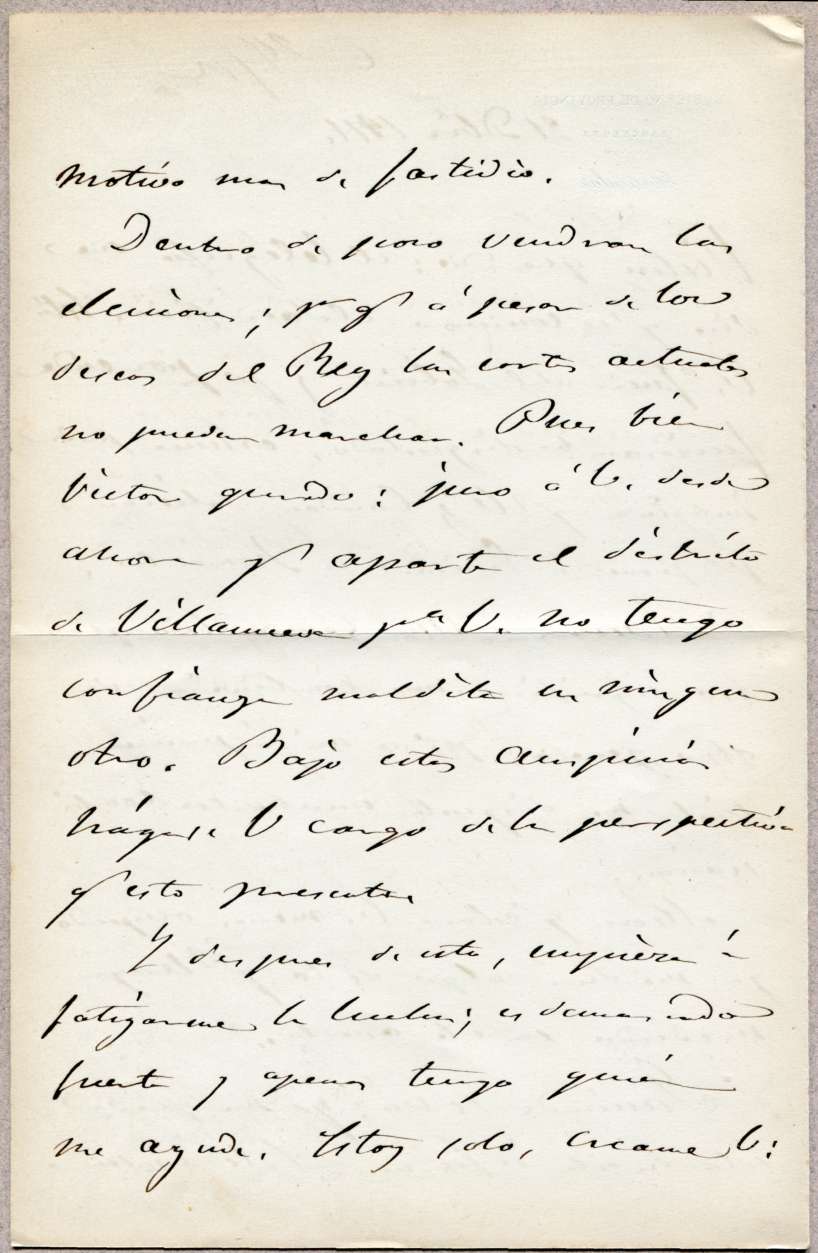 motivo mas de fastidio.
Dentro de poco vendran las
elecciones; pr qe á pesar de los
deseos del Rey las cortes actuales
no pueden marchar. Pues bien
Victor querido: juro á V. desde
ahora qe aparte el distrito
de Villanueva pa V. no tengo
confianza maldita en ningun
otro. Bajo estos auspicios
hágase V cargo de la perspectiva
qe esto presenta.
Y despues de esto, empieza á
fatigarme la lucha; es demasiado
fuerte y apenas tengo quién
me ayude. Estoy solo, creame V: